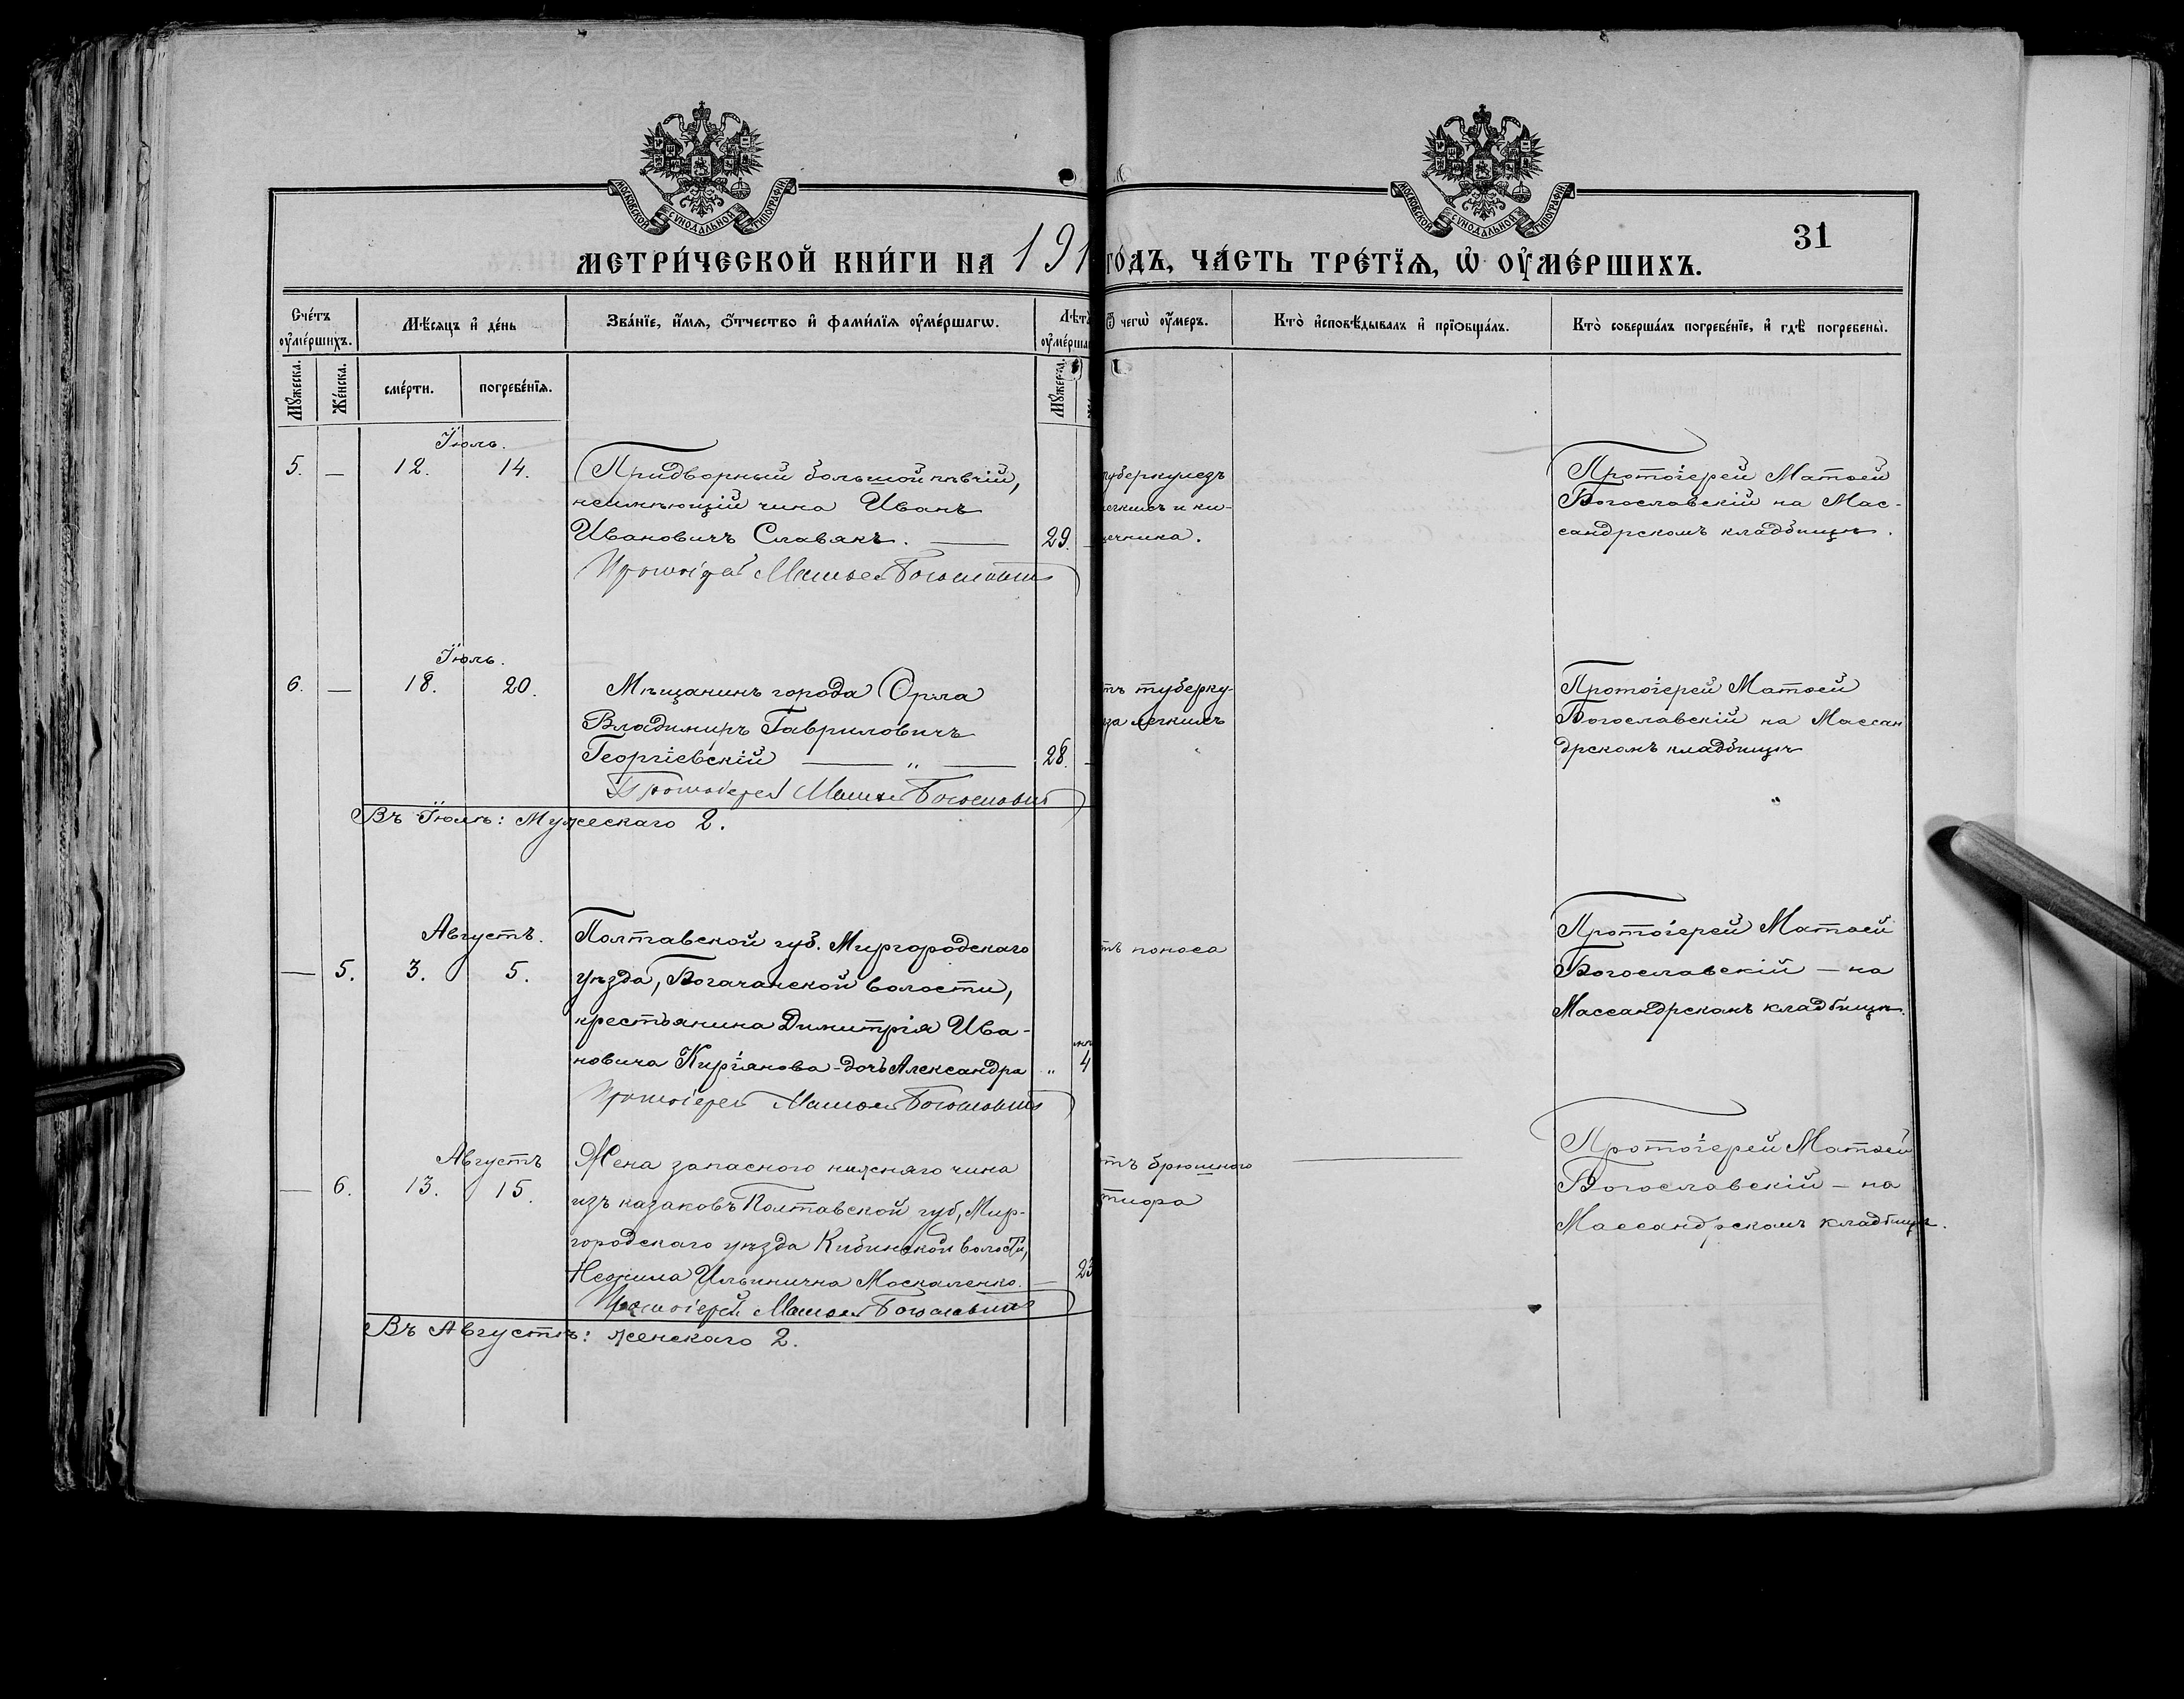 МОСКОВСКОЙ СѴНОДАЛЬНОЙ ТИПОГРАФІИ
МОСКОВСКОЙ СѴНОДАЛЬНОЙ ТИПОГРАФІИ
31
МЕТРИ́ЧЕСКОЙ КНИ́ГИ НА 191
ГО́ДЪ, ЧА́СТЬ ТРЕ́ТІѦ, Ѡ ОУ҆МЕ́РШИХЪ.
Сче́тъ оу҆ме́ршихъ.
Мѣ́сяцъ и҆ де́нь
Зва́нїе, и҆́мѧ, ѻ҆́тчество и҆ фами́лїѧ оу҆ме́ршагѡ.
Лѣт
оу҆ме́рша
Ѿ чегѡ̀ оу҆́меръ.
Кто̀ и҆сповѣ́дывалъ и҆ прїѻбща́лъ.
Кто̀ соверша́лъ погребе́нїе, и҆ гдѣ̀ погребены̀.
Мꙋ́жеска.
Же́нска.
сме́рти.
погребе́нїѧ.
Мꙋ́жеска.
Іюль.
5. — 12. 14.
Придворный большой пѣвчій,
неимѣющій чина Иванъ
Ивановичъ Славякъ. — 29.
Протоіерей Матѳей Богословскій
туберкулезъ
легкихъ и ки-
шечника.
Протоіерей Матѳей
Богославскій на Мас-
сандрскомъ кладбищѣ.
Іюль.
6. — 18. 20.
Мѣщанинъ города Орла
Владиміръ Гавриловичъ
Георгіевскій — „ — 28.
Протоіерей Матѳей Богословскій
тъ туберку-
за легкихъ
Протоіерей Матѳей
Богославскій на Массан
дрскомъ кладбищѣ
Въ Іюлѣ: Мужескаго 2.
Августъ.
— 5. 3. 5.
Полтавской губ. Миргородскаго
уѣзда, Богачанской волости,
крестьянина Димитрія Ива-
новича Киріянова - дочь Александра „ 4
Протоіерей Матѳей Богословскій
тъ поноса
Протоіерей Матѳей
Богославскій — на
Массандрскомъ кладбищѣ.
Августъ
— 6. 13. 15.
Жена запасного нижняго чина
изъ казаковъ Полтавской губ, Мир-
городскаго уѣзда Кибинской волости,
Неонила Ильинична Москаленко. — 23
Протоіерей Матѳей Богословскій
тъ брюшного
тифа
Протоіерей Матѳей
Богославскій — на
Массандрскомъ кладбищѣ.
Въ Августѣ: женскаго 2.